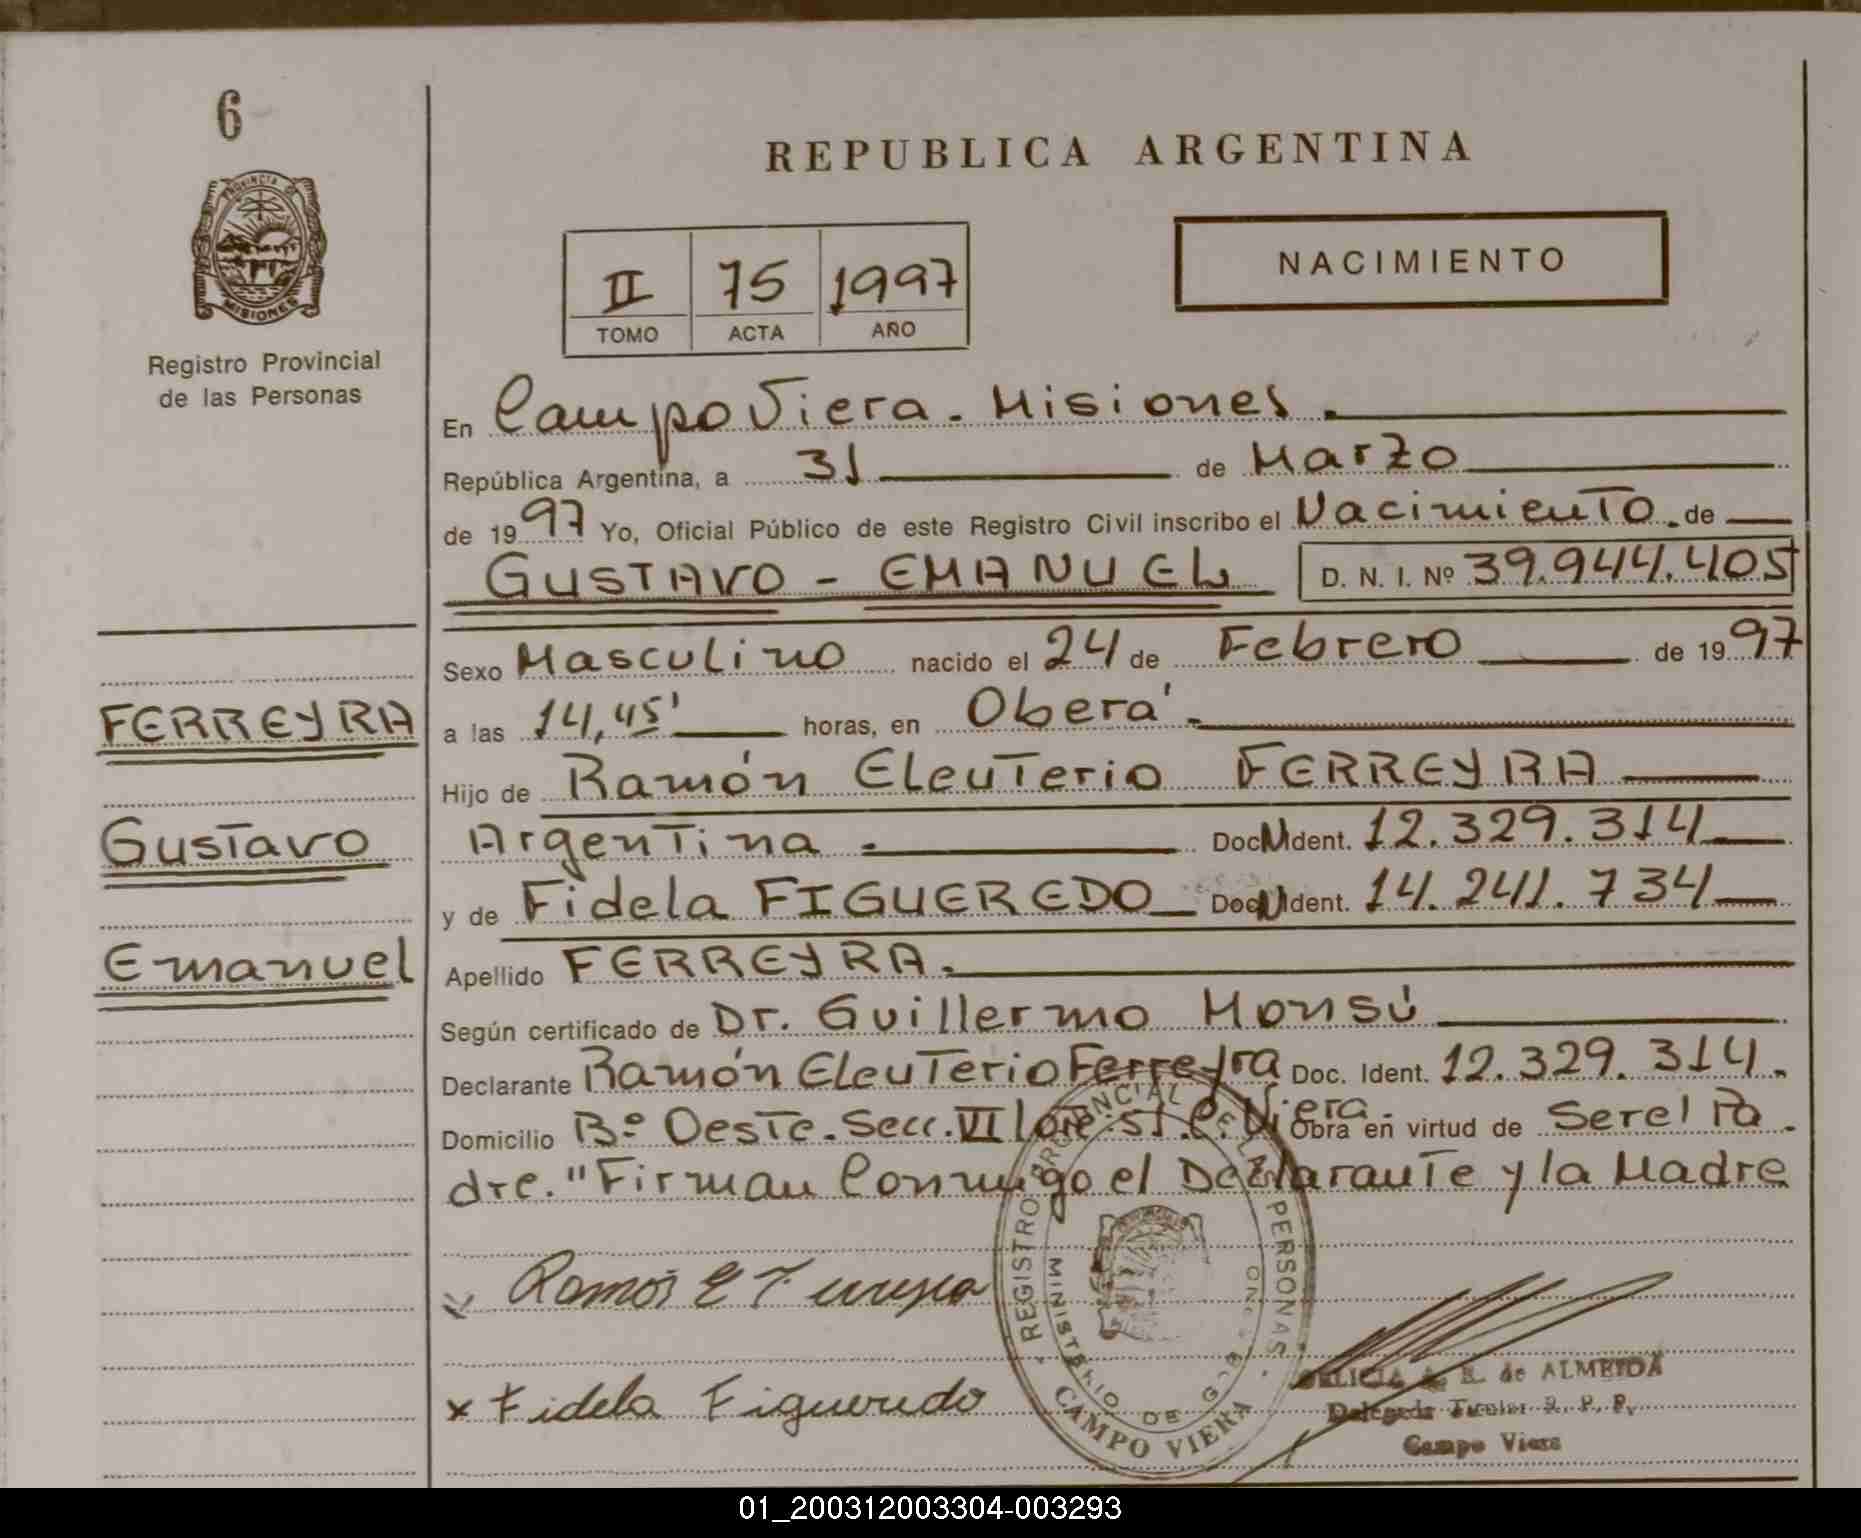 6
PROVINCIA DE
MISIONES
Registro Provincial
de las Personas
REPUBLICA ARGENTINA
NACIMIENTO
II 75 1997
TOMO ACTA AÑO
En Campo Viera - Misiones.
República Argentina, a 31 de Marzo
de 1997 Yo, Oficial Público de este Registro Civil inscribo el Nacimiento. de
GUSTAVO - EMANUEL D. N. I. Nº 39.944.405
Sexo Masculino nacido el 24 de Febrero de 1997
FERREYRA
a las 14,45' horas, en Oberá.
Hijo de Ramón Eleuterio FERREYRA
Gustavo
Argentina - Doc. Ident. 12.329.314
y de Fidela FIGUEREDO Doc. Ident. 14.241.734
Emanuel
Apellido FERREYRA.
Según certificado de Dr. Guillermo Monsú
Declarante Ramón Eleuterio Ferreyra Doc. Ident. 12.329.314.
Domicilio Bº Oeste. Secc. VI lote. 51. C. Viera. Obra en virtud de Ser el Pa
dre. "Firman Conmigo el Declarante y la Madre
REGISTRO PROVINCIAL DE LAS PERSONAS
MINISTERIO DE GOBIERNO
CAMPO VIERA
Ramón E Ferreyra
x Fidela Figueredo
de ALMEIDA
Delegada Titular R. P. P.
Campo Viera
01_200312003304-003293